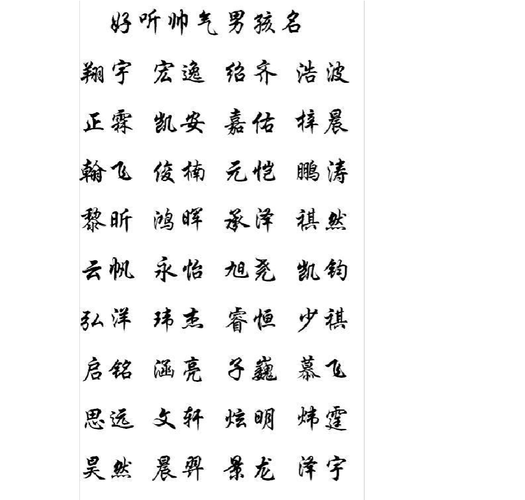 好听帅气男孩名
翔宇 宏逸 绍齐 浩波
正霖 凯安 嘉佑 梓晨
翰飞 俊楠 元恺 鹏涛
黎昕 鸿晖 承泽 祺然
云帆 永怡 旭尧 凯钧
弘洋 玮杰 睿恒 少祺
启铭 涵亮 子巍 慕飞
思远 文轩 炫明 炜霆
昊然 晨羿 景龙 泽宇